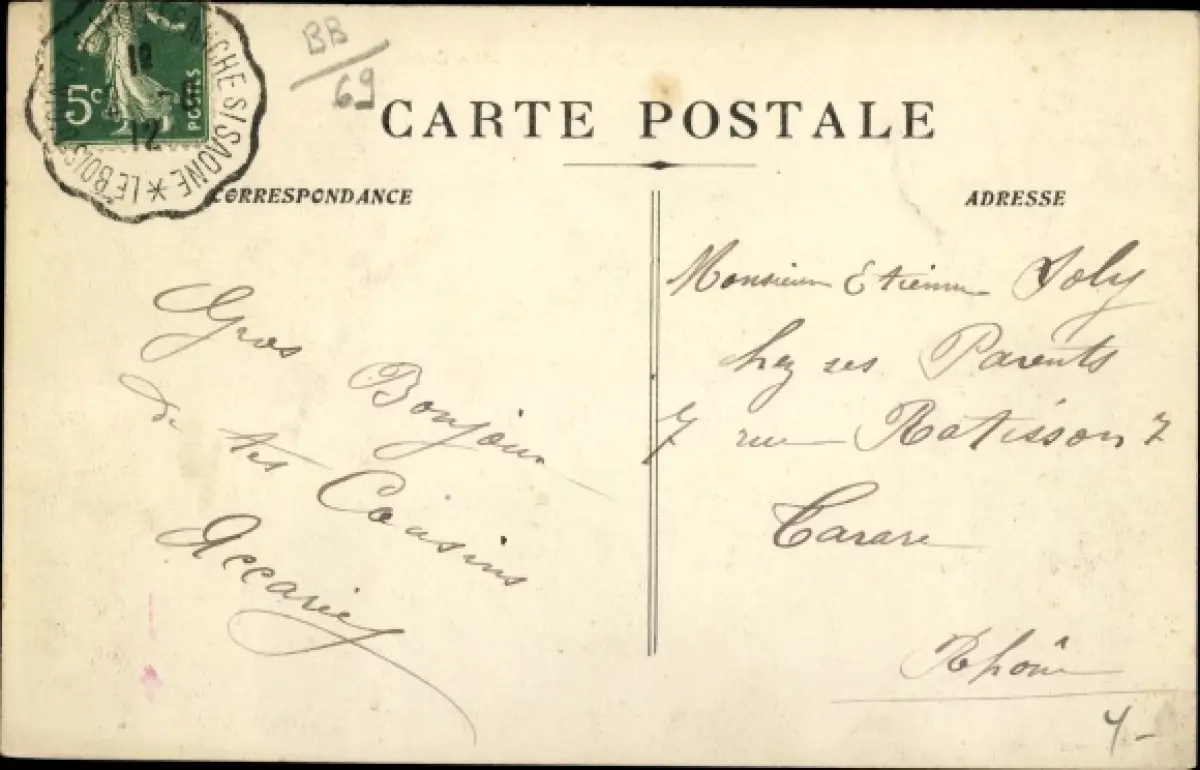 BB
69
5c
POSTES
12
12
CHE S/SAONE * LE BOIS
CARTE POSTALE
CORRESPONDANCE
Gros Bonjour
de tes Cousins
Accarie
ADRESSE
Monsieur Etienne Joly
chez ses Parents
7 rue Ratisson 7
Tarare
Rhône
4-